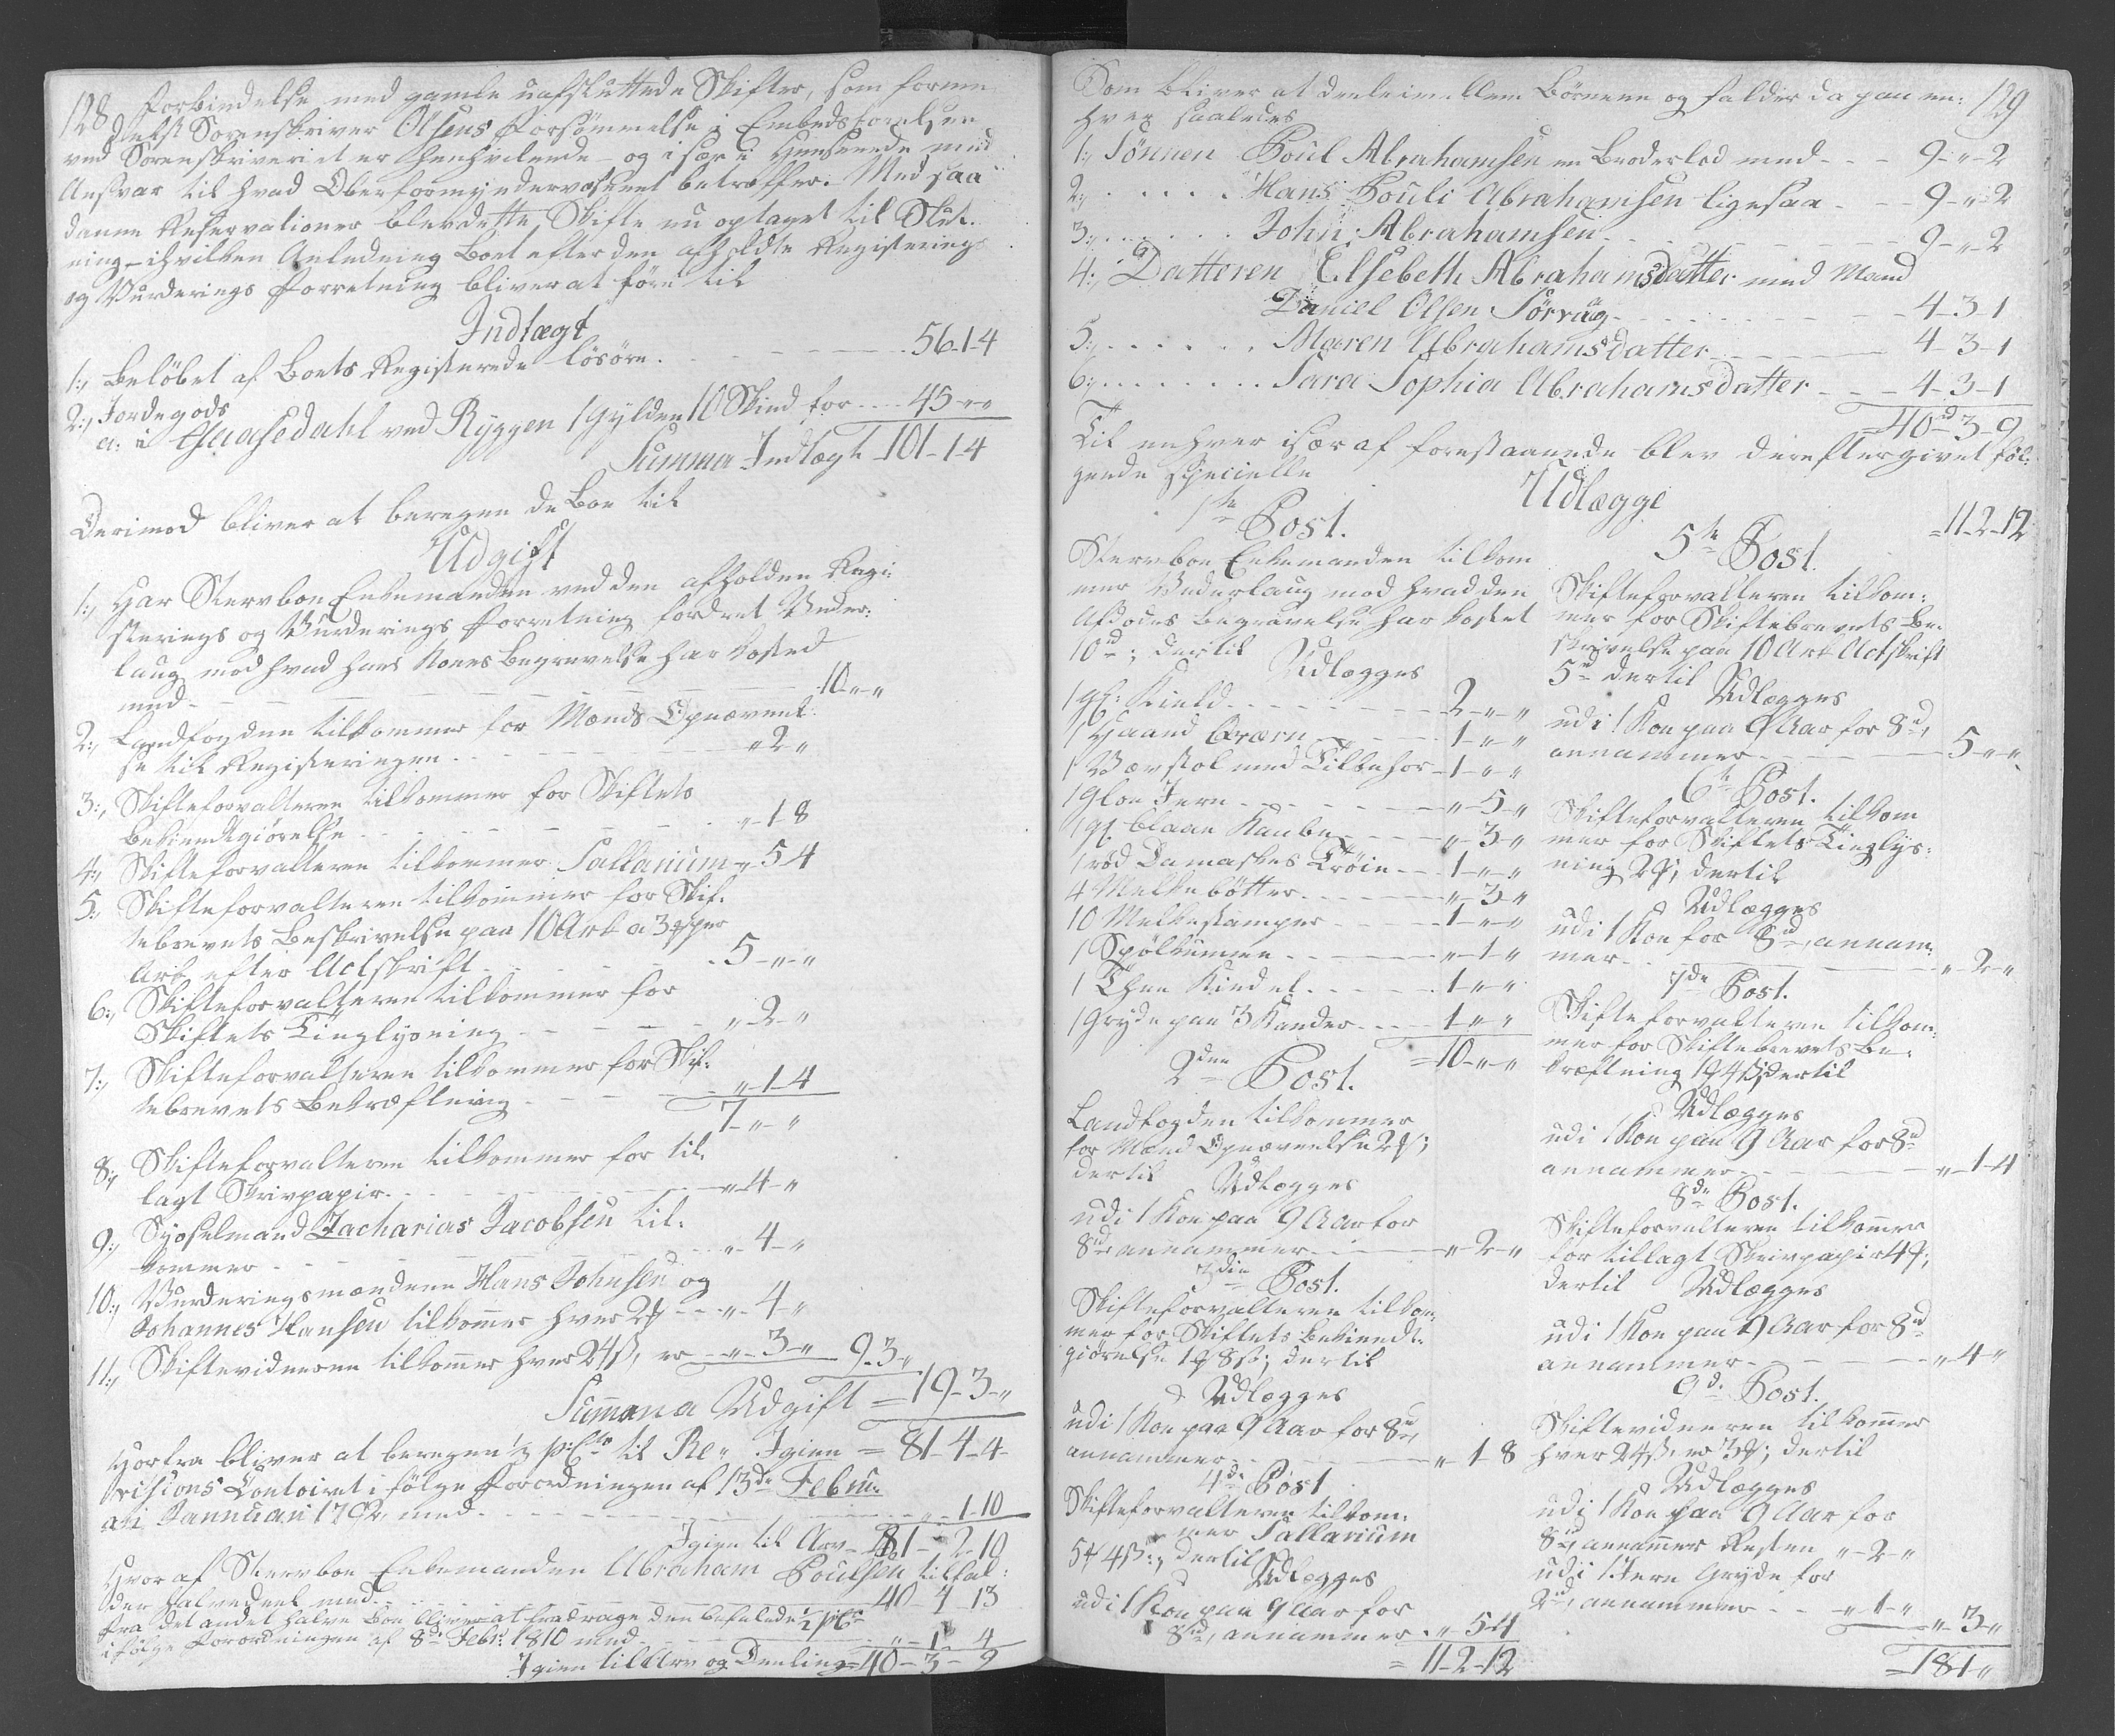 128 forbindelse med gamle uafsluttede Skifter, som formo-
delst Sorenskriver Olsens Forsømmelse i Embedsførelsen
ved Sorenskriveriet er henhvilende – og især i Henseende med
Ansvar til hvad Oberformynderwæsenet betræffer. Med saa
danne Reservationer blev dette Skifte nu optaget til Slut-
ning – i hvilken Anledning Boet efter den afholdte Registerings
og Vurderings Forretning bliver at føre til
Indtægt
1., Beløbet af Boets Registerede løsøre. 56-1-4
2., Jordegods
a: i Gaasedahl ved Ryggen 1 Gylden 10 Skind for 45-"-"
Summa Indtægt 101-1-4
Derimod bliver at beregne de Boe til
Udgift
1., Har Stervboe Enkemanden ved den afholden Regi-
sterings og Vurderings Forretning fordret Veder-
laug mod hvad hans Kones Begravelse har kosted
med 10-"-"
2., Landfogden tilkommer for Mænds Opnævnel-
se til Registeringen "-2-"
3., Skifteforvalteren tilkommer for Skiftets
Bekiendtgiørelse "-1-8
4., Skifteforvalteren tilkommer Sallarium "-5-4
5., Skifteforvalteren tilkommer for Skif-
tebrevets Beskrivelse paa 10 Ark a 3 ß per
Ark, efter Actskrift 5-"-"
6., Skifteforvalteren tilkommer for
Skiftets Tinglysning "-2-"
7., Skifteforvalteren tilkommer for Skif-
tebrevets Bekræftning "-1-4
7-"-"
8., Skifteforvalteren tilkommer for til-
lagt Skrivpapir "-4-"
9., Sysselmand Zacharias Jacobsen til-
kommer "-4-"
10., Vurderingsmændene Hans Johnsen og
Johannes Hansen tilkommer hver 2 "-4-"
11., Skiftevidnerne tilkommer hver 24 ß, er "-3-" 9-3-"
Summa Udgift = 19-3-"
Igien = 81-4-4
Horfra bliver at beregne ½ p:Cto til Re-
visions Contoiret i følge Forordningen af 13de Febru-
ari Januari 1792, med "-1-10
Igien til Arv 81-2-10
Hvor af Stervboe Enkemanden Abraham Poulsen tilfal-
der halvedeel med 40-4-13
Fra det andet halve Boe bliver at fradrage den befalede ½ p:Co
i følge Forordningen af 8de Febr: 1810 med "-1-4
Igien til Arv og Deeling = 40-3-9
129
Som bliver at deele imellem Børnene og falder da paa en-
hver saaledes
1., Sønnen Poul Abrahamsen en Broderlod med 9-"-2
2., Hans Pouli Abrahamsen ligesaa 9-"-2
3., John Abrahamsen 9-"-2
4., Datteren Elsebeth Abrahamsdatter med Mand
Daniel Olsen Sørvaag 4-3-1
5., Maren Abrahamsdatter 4-3-1
6., Sara Sophia Abrahamsdatter 4-3-1
= 40 d 3-9
Til enhver især af forestaaende blev derefter givet føl-
gende specielle
Udlægge
1te Post.
Stervboe Enkemanden tilkom
mer Vederlaug mod hvad den
Afdødes Begravelse har kostet
10 d; dertil
Udlægges
1 gl: Kield 2-"-"
1 Haand Qværn 1-"-"
1 Vævstol med Tilbehør 1-"-"
1 Iern "-5-"
1 gl. blaae Kaabe "-3-"
1 rød Damaskes Trøie 1-"-"
4 Melke bøtter "-3-"
10 Melkestamper 1-"-"
1 Spølkumme "-1-"
1 Thee Kiedel 1-"-"
1 Gryde paa 3 Kander 1-"-"
= 10-"-"
2den Post.
Landfogden tilkommer
for Mænd Opnævnelse 2 ;
dertil
Udlægges
udi 1 Koe paa 9 Aar for
8 d, annammer "-2-"
3die Post.
Skifteforvalteren tilkom-
mer for Skiftets Bekiendt-
giørelse 1 8 ß; dertil
Udlægges
udi 1 Koe paa 9 Aar for 8 d,
annammer "-1-8
4de Post
Skifteforvalteren tilkom-
mer Sallarium
5 4 ß:, dertil
Udlægges
udi 1 Koe paa 9 Aar for
8 d, annammer "-5-4
= 11-2-12
= 11-2-12
5te Post.
Skifteforvalteren tilkom-
mer for Skiftebrevets Be-
skrivelse paa 10 Ark Actskrift
5 d dertil
Udlægges
udi 1 Koe paa 9 Aar for 8 d,
annammer 5-"-"
6te Post.
Skifteforvalteren tilkom
mer for Skiftets Tinglys-
ning 2 , dertil
Udlægges
udi 1 Koe for 8 d, annam-
mer "-2-"
7de Post.
Skifteforvalteren tilkom-
mer for Skiftebrevets Be-
kræftning 1 4 ß, dertil
Udlægges
udi 1 Koe paa 9 Aar for 8 d
annammer "-1-4
8de Post.
Skifteforvalteren tilkommer
for tillagt Skrivpapir 4 ;
dertil Udlægges
udi 1 Koe paa 9 Aar for 8 d
annammer "-4-"
9de Post.
Skiftevidnerne tilkommer
hver 24 ß, er 3 ; dertil
Udlægges
udi 1 Koe paa 9 Aar for
8 d, annammer Resten "-2-"
udi 1 Iern Gryde for
2 d, annammer "-1-"
"-3-"
= 18-1-"